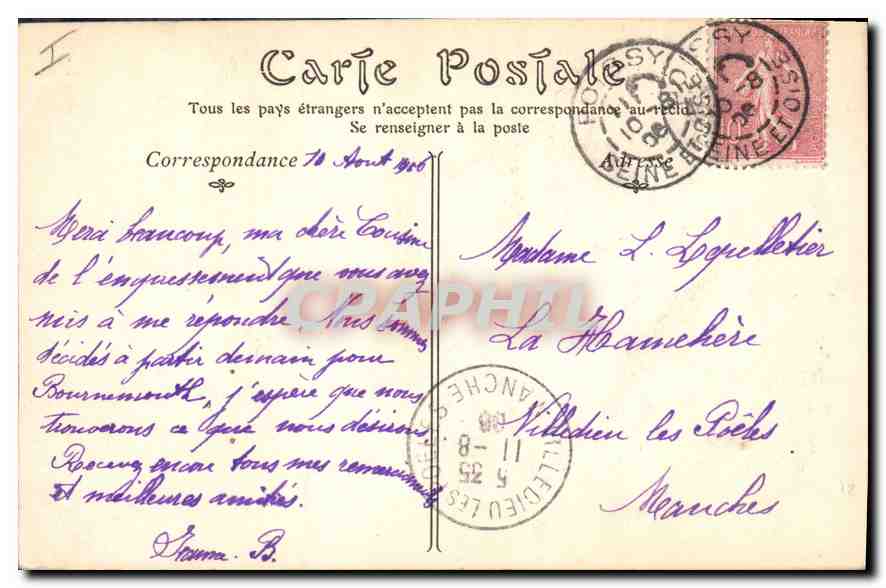 I
Carte Postale
Tous les pays étrangers n'acceptent pas la correspondance au recto
Se renseigner à la poste
Correspondance 10 Aout 1906
Adresse
Merci beaucoup, ma chère Cousine
de l'empressement que vous avez
mis à me répondre. Nous sommes
décidés à partir demain pour
Bournemouth, j'espère que nous
trouverons ce que nous désirons
Recevez encore tous mes remerciements
et meilleures amitiés.
B.
Madame L. Lepelletier
La
Villedieu les Poêles
Manches
POISSY
SEINE ET OISE
POISSY
SEINE ET OISE
VILLEDIEU LES POELES
MANCHE
5 35
11 - 8
06
CPAPHIL